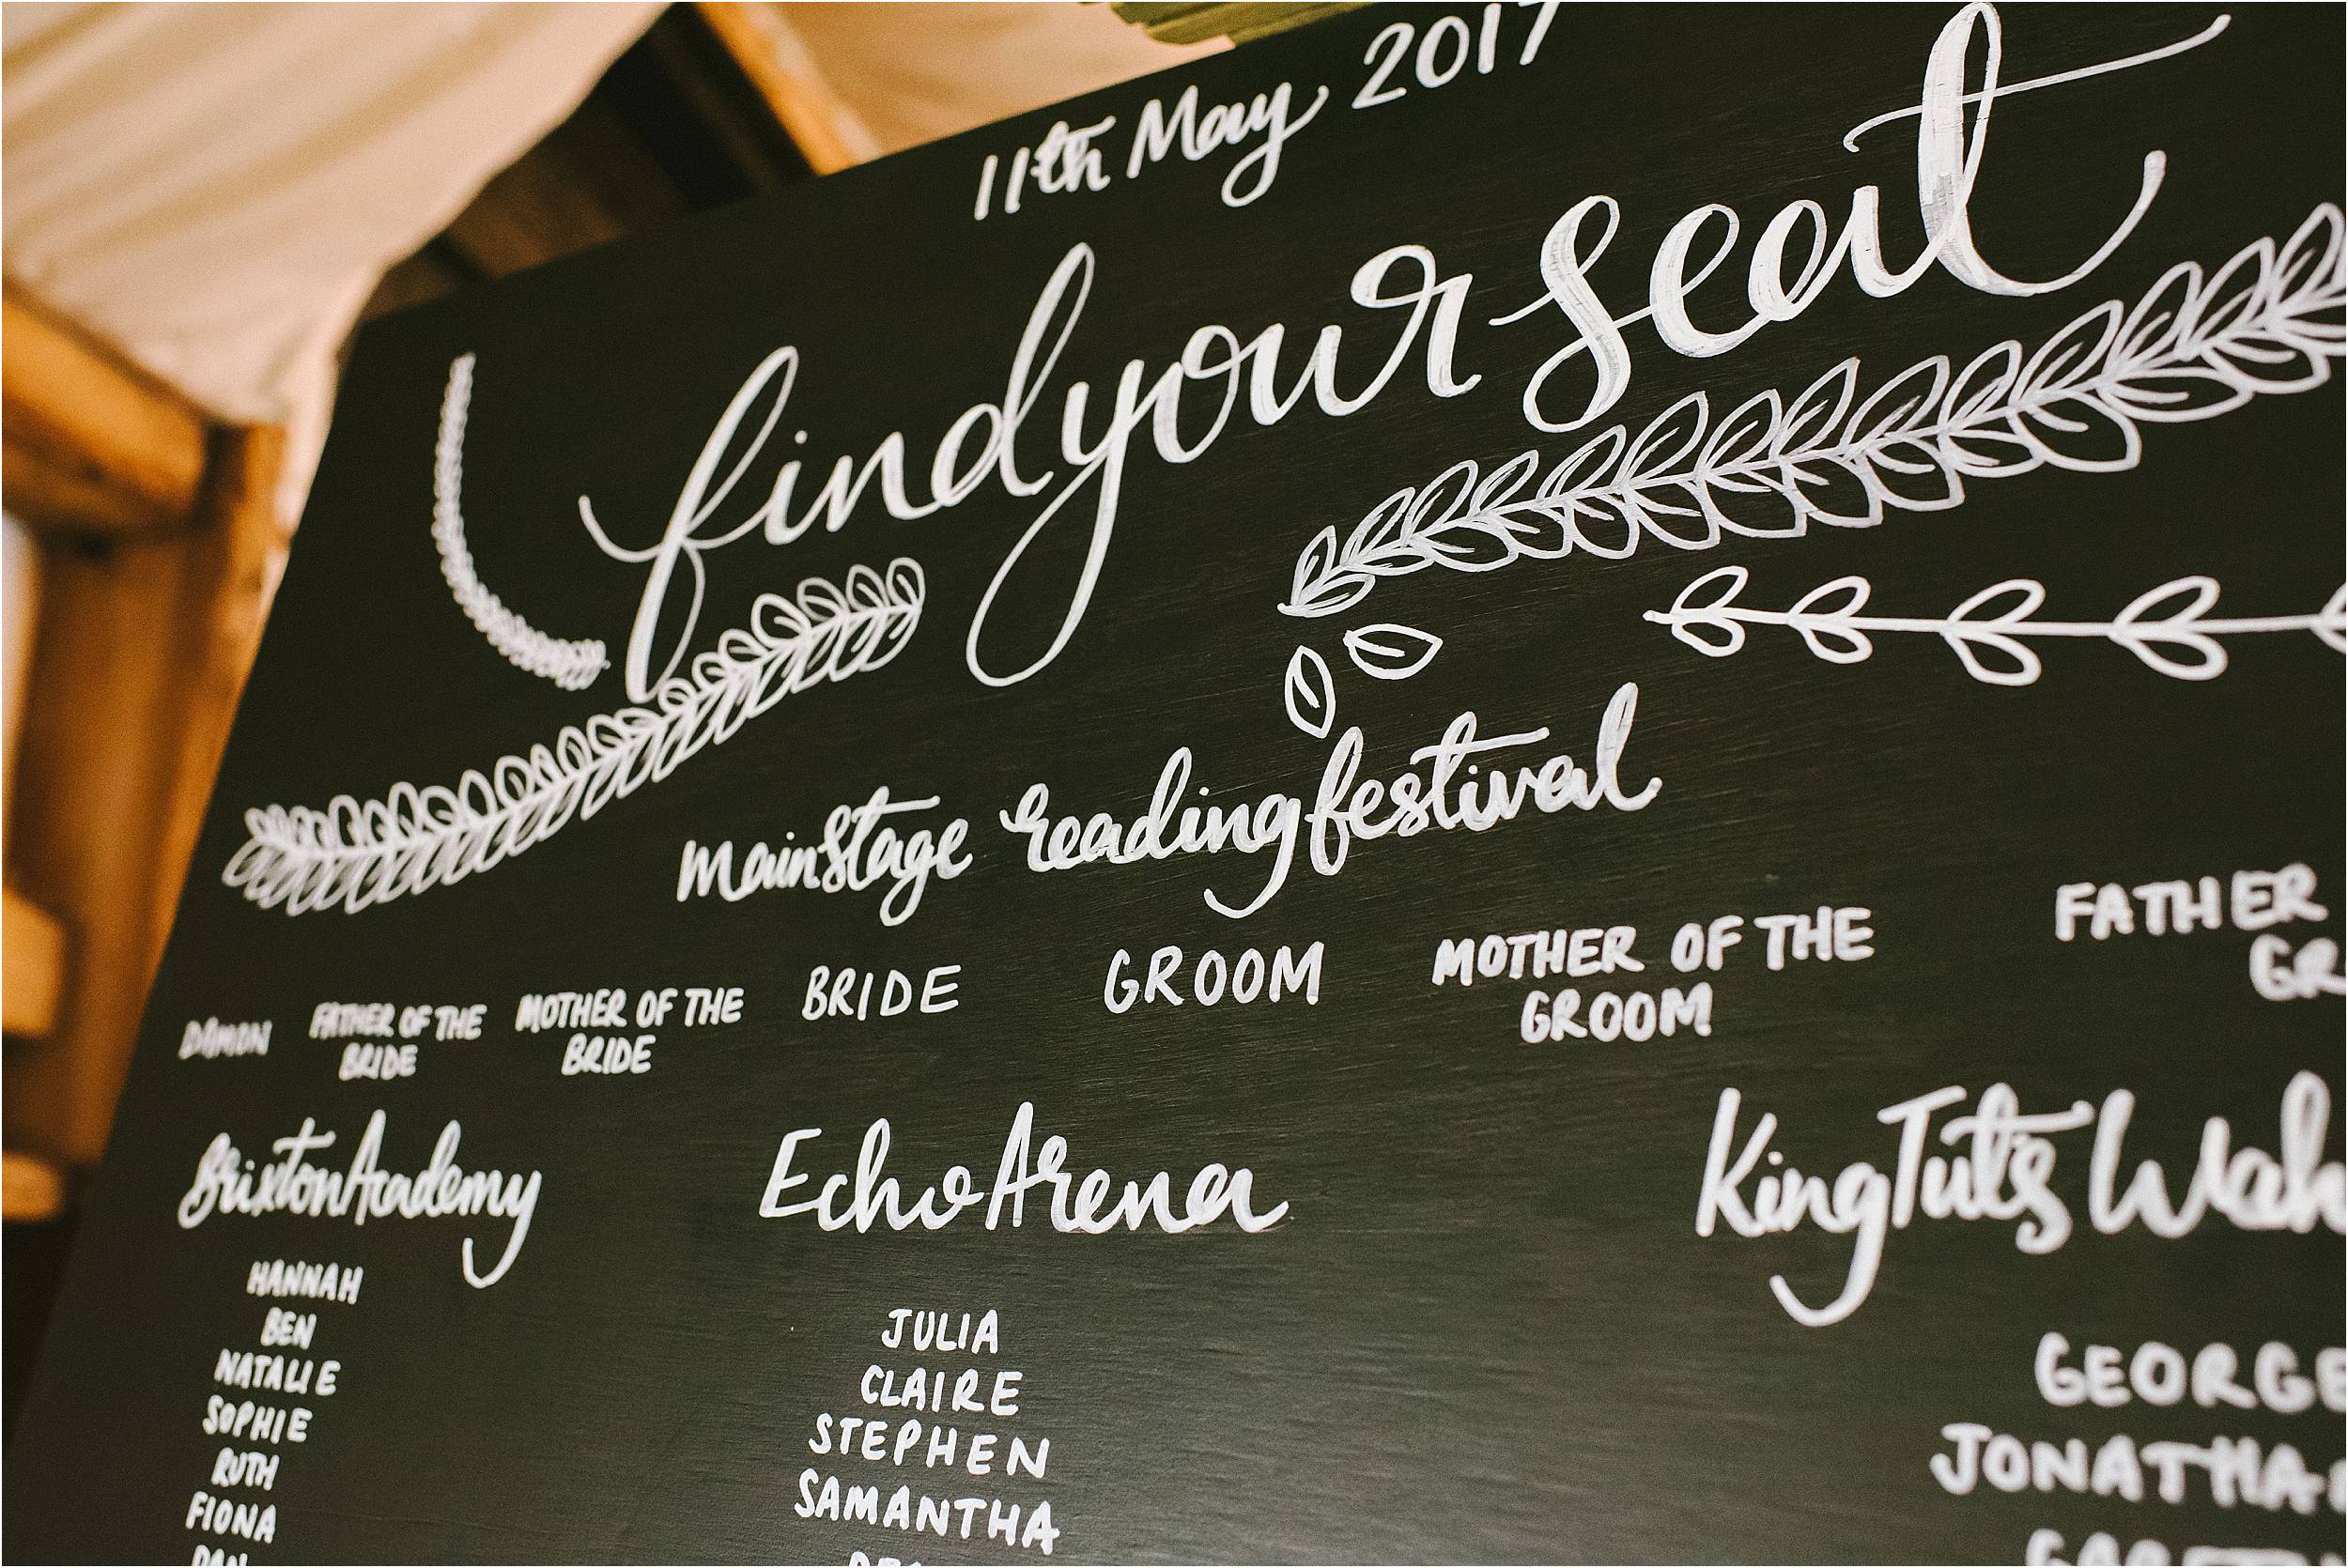 11th May 2017
find your seat
main stage reading festival
DAMON FATHER OF THE BRIDE MOTHER OF THE BRIDE BRIDE GROOM MOTHER OF THE GROOM FATHER
Brixton Academy
HANNAH
BEN
NATALIE
SOPHIE
RUTH
FIONA
DAN
Echo Arena
JULIA
CLAIRE
STEPHEN
SAMANTHA
King Tut's Wah
GEORGE
JONATHA